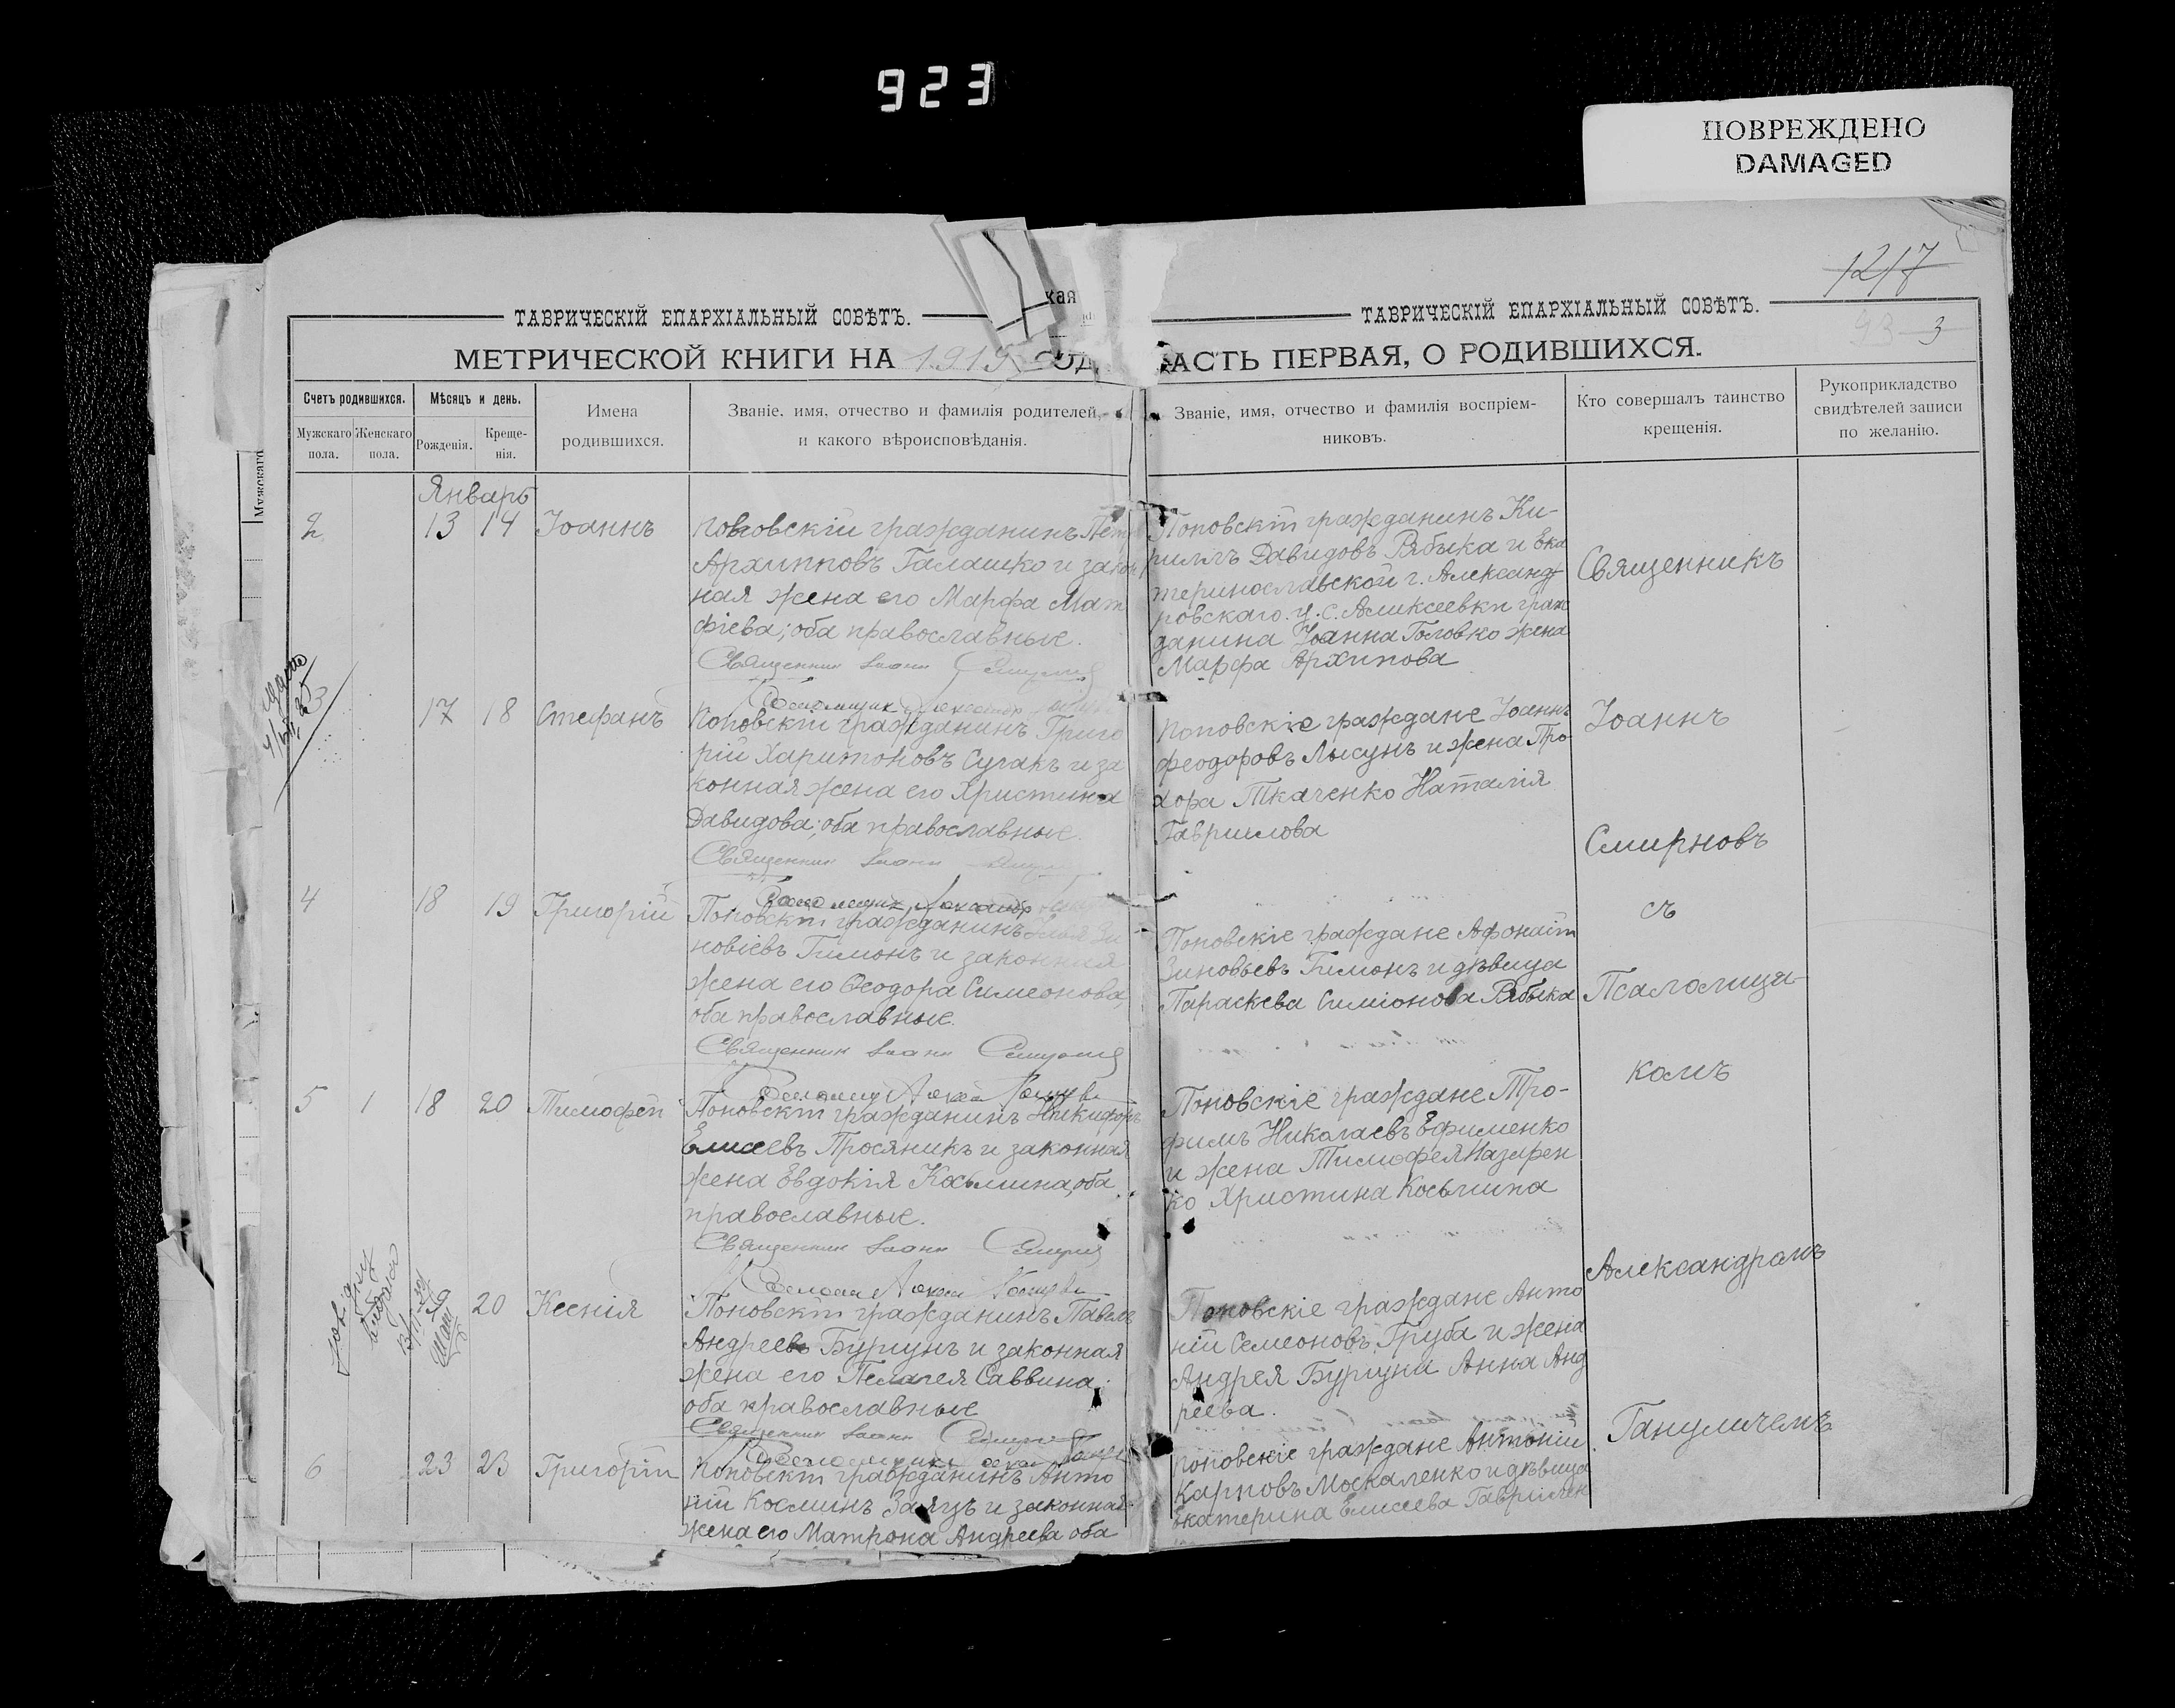 923
ПОВРЕЖДЕНО
DAMAGED
1217
93-3
ТАВРИЧЕСКІЙ ЕПАРХІАЛЬНЫЙ СОВѢТЪ.
кая
ТАВРИЧЕСКІЙ ЕПАРХІАЛЬНЫЙ СОВѢТЪ.
МЕТРИЧЕСКОЙ КНИГИ НА 1919 ГОД
АСТЬ ПЕРВАЯ, О РОДИВШИХСЯ.
Счетъ родившихся.
Мужскаго пола.
Женскаго пола.
Мѣсяцъ и день.
Рожденія.
Креще-
нія.
Имена
родившихся.
Званіе, имя, отчество и фамилія родителей,
и какого вѣроисповѣданія.
Званіе, имя, отчество и фамилія воспріем-
никовъ.
Кто совершалъ таинство
крещенія.
Рукоприкладство
свидѣтелей записи
по желанію.
Мужскаго
Январь
2 13 14 Іоаннъ
Поповскій гражданинъ Пет
Архипповъ Галашко и закон
ная жена его Марфа Мат
фіева; оба православные.
Священник Іоанн
Поповскій гражданинъ Ки-
риллъ Давидовъ Рябыка и Ека
теринославской г. Александ
ровскаго. у. с. Алексеевки граж
данина Іоанна Головко жена
Марфа Архипова
Священникъ
3 17 18 Стефанъ
Псаломщик Александр
Поповскій гражданинъ Григо
рій Харитоновъ Сугакъ и за
конная жена его Христина
Давидова; оба православные.
Священник Іоанн
Поповскіе граждане Іоаннъ
Феодоровъ Лысунъ и жена Про
хора Ткаченко Наталія
Гавриилова
Іоаннъ
Смирновъ
4 18 19 Григорій
Псаломщик Александр
Поповскій гражданинъ
новіевъ Гимонъ и законная
жена его Феодора Симеонова,
оба православные.
Священник Іоанн Смирнов
Поповскіе граждане Афонаій
Зиновьевъ Гимонъ и дѣвица
Параскева Симіонова Рябыка
съ
Псаломщи-
комъ
5 1 18 20 Тимофей
Поповскій гражданинъ Никифоръ
Елисеевъ Просяникъ и законная
жена Евдокія Косьмина, оба
православные.
Священник Іоанн Смирнов
Поповскіе граждане Тро-
фимъ Николаевъ Ефименко
и жена Тимофея Назарен
ко Христина Косьмина
20 Ксенія
Поповскій гражданинъ Павелъ
Андреевъ Бургунъ и законная
жена его Пелагея Саввина;
оба православные
Священник Іоанн
Поповскіе граждане Анто
ній Семеоновъ Груба и жена
Андрея Бургуна Анна Анд
реева.
Александромъ
Гануличемъ
6 23 23 Григорій
Поповскій гражданинъ Анто
ній Космин Заяцъ и законная
жена его Матрона Андреева оба
Поповскіе граждане Антоній
Карповъ Москаленко и дѣвица
Екатерина Елисеева Гаврилен